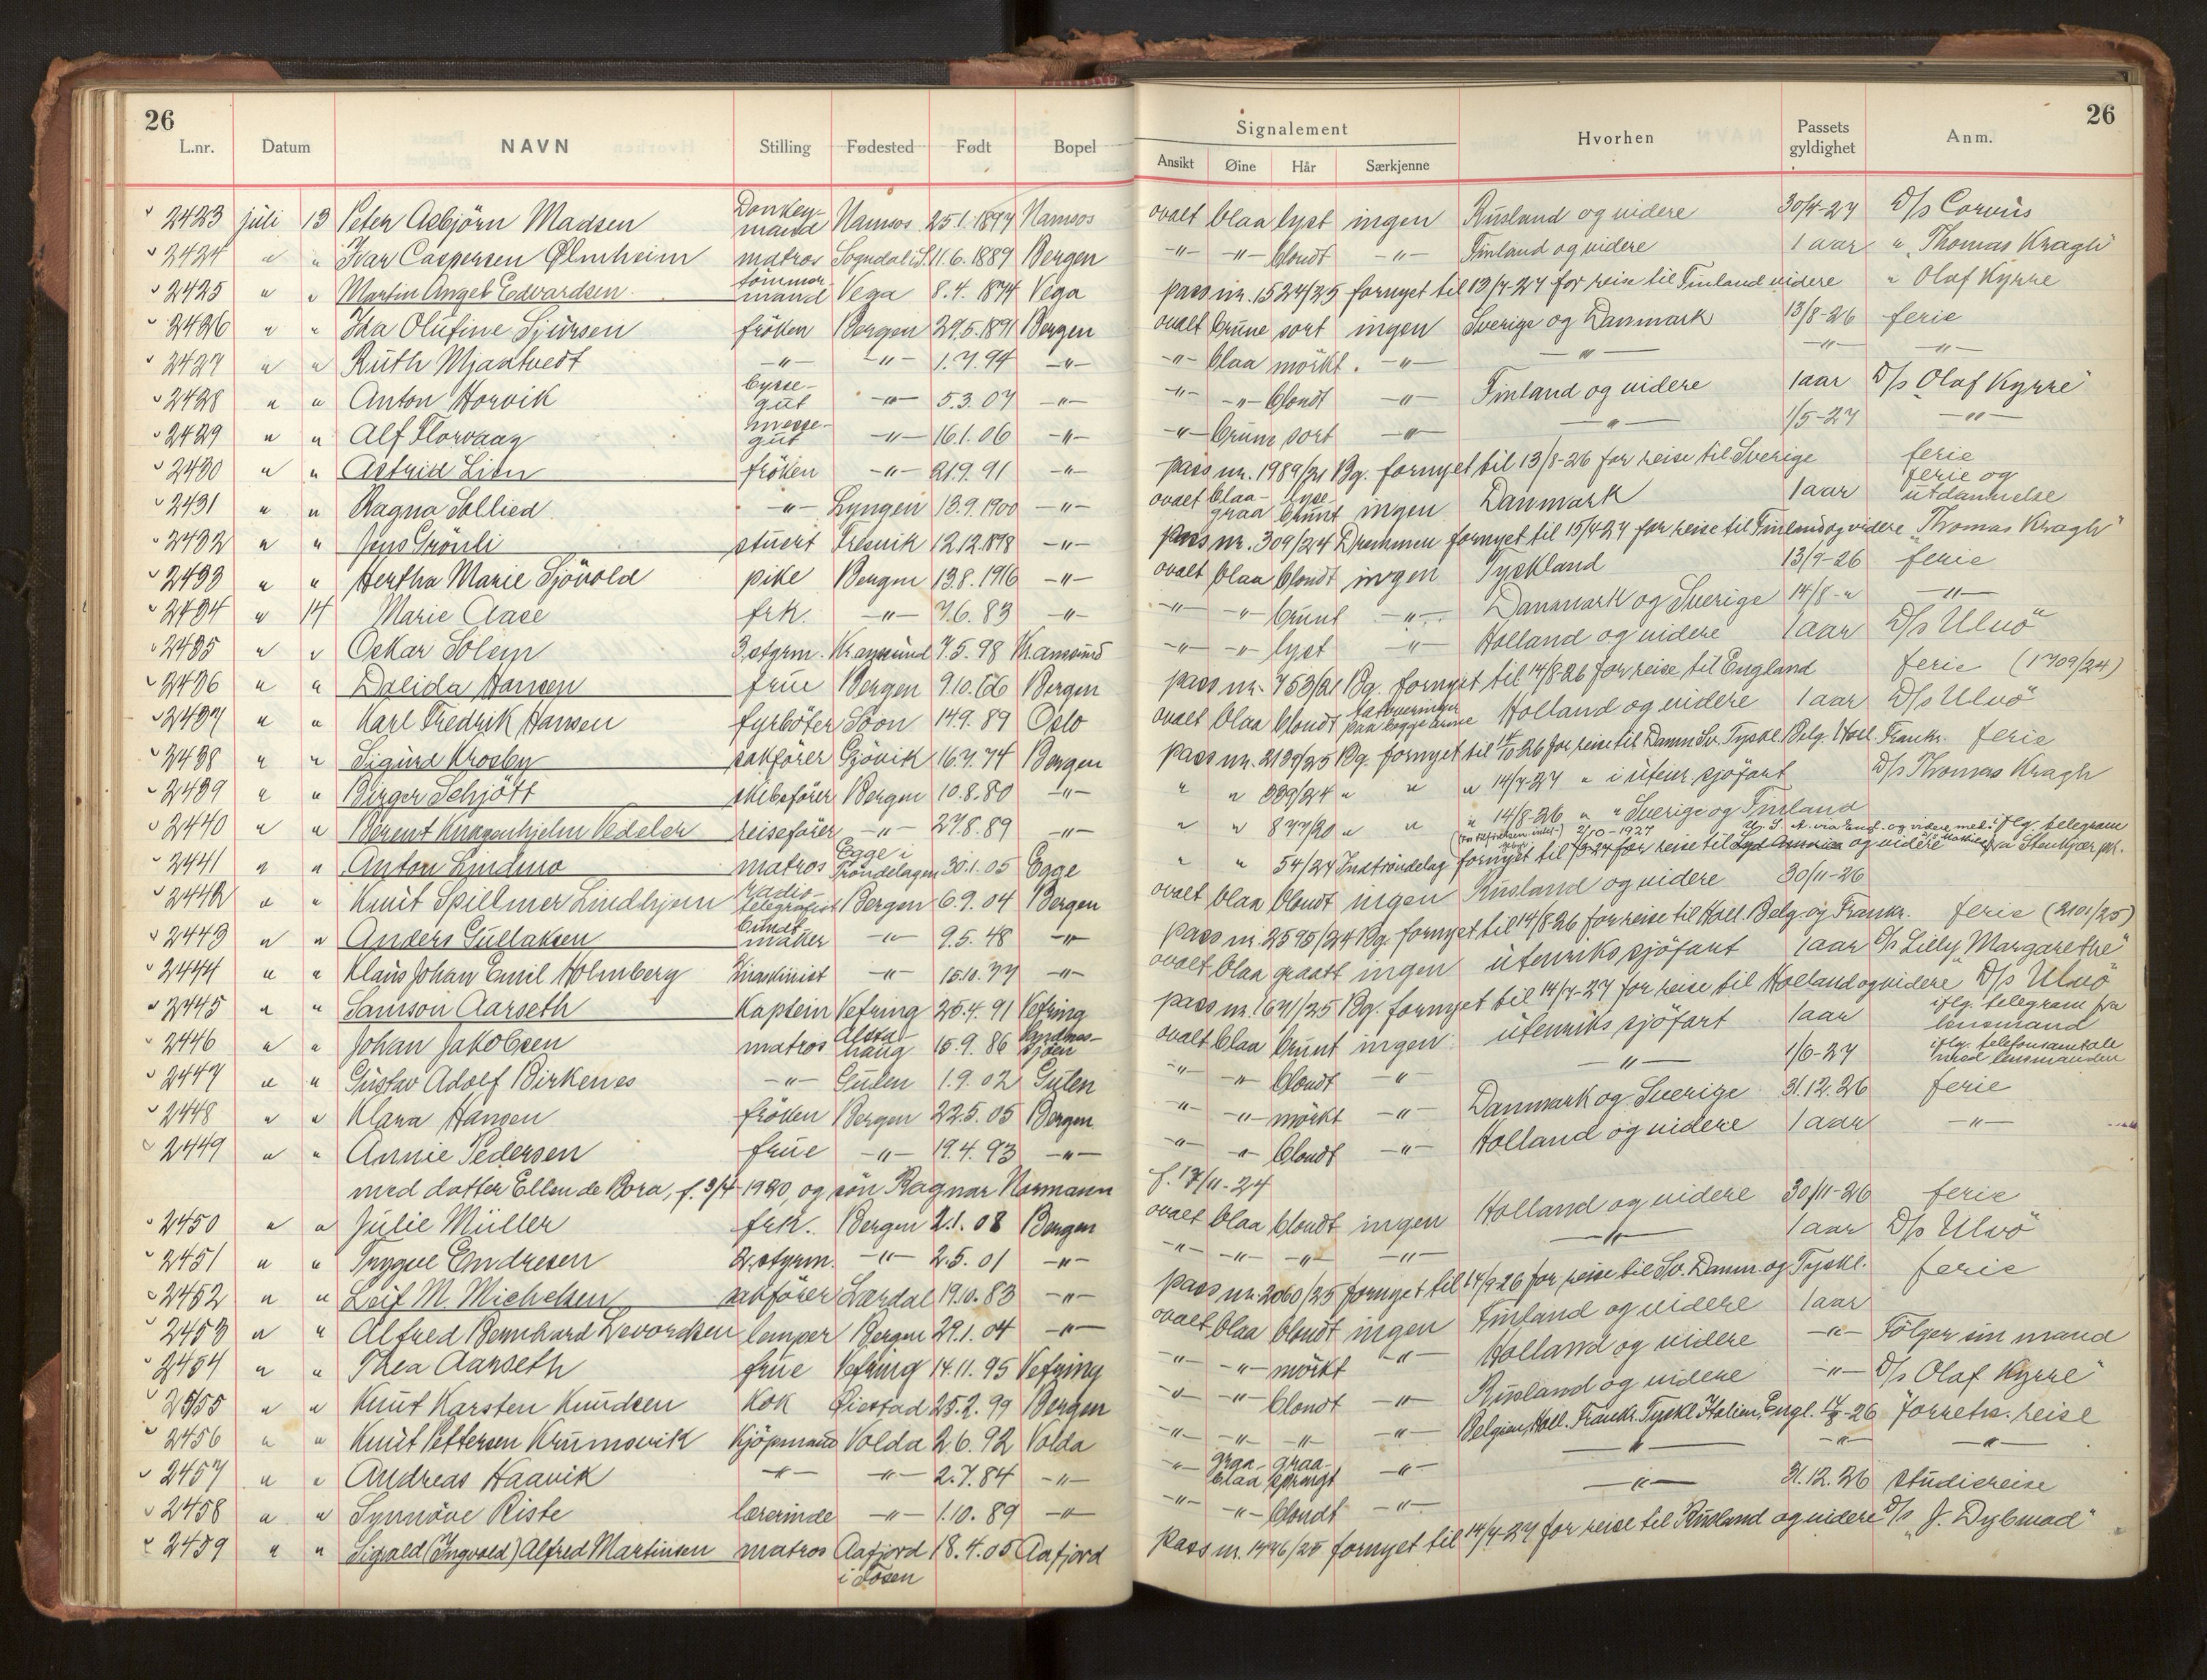 26
L.nr. Datum NAVN Stilling Fødested Født Bopel
2423 juli 13 Peter Asbjörn Madsen Donkey-mand Namsos 25.1.1897 Namsos
2424 " " Ivar Caspersen Ølmheim matros Sogndal i S. 11.6.1889 Bergen
2425 " " Martin Angel Edvardsen tömmermand Vega 8.4.1874 Vega
2426 " " Ida Olufine Sjursen fröken Bergen 29.5.1891 Bergen
2427 " " Ruth Mjaatvedt -"- -"- 1.7.94 -"-
2428 " " Anton Horvik bysse-gut -"- 5.3.07 -"-
2429 " " Alf Florvaag messe-gut -"- 16.1.06 -"-
2430 " " Astrid Lien fröken -"- 21.9.91 -"-
2431 " " Ragna Sollied -"- Lyngen 13.9.1900 -"-
2432 " " Jens Grönli stuert 12.12.1878 -"-
2433 " " Hertha Marie Sjövold pike Bergen 13.8.1916 -"-
2434 " 14 Marie Aase frk. -"- 7.6.83 -"-
2435 " " Oskar Solem 3.styrm. Kr.ansund 7.5.98 Kr.ansund
2436 " " Dalida Hansen frue Bergen 9.10.66 Bergen
2437 " " Karl Fredrik Hansen fyrböter Soon 14.9.89 Oslo
2438 " " Sigurd Krosby sakförer Gjövik 16.7.74 Bergen
2439 " " Birger Schjött skibsförer Bergen 10.8.80 -"-
2440 " " Berent Knagenhjelm Vedeler reiseförer -"- 27.8.89 -"-
2441 " " Anton Lindmo matros Egge i Tröndelagen 30.1.05 Egge
2442 " " Knut Spillmer Lindhjem radio-telegrafist Bergen 6.9.04 Bergen
2443 " " Anders Gullaksen buntmaker -"- 9.5.48 -"-
2444 " " Klaus Johan Emil Holmberg maskinist -"- 15.10.77 -"-
2445 " " Samson Aarseth Kaptein Vefring 25.4.91 Vefring
2446 " " Johan Jakobsen matros Alsta-haug 15.9.86 Sandnes-sjöen
2447 " " Gustav Adolf Birkenes -"- Gulen 1.9.02 Gulen
2448 " " Klara Hansen fröken Bergen 22.5.05 Bergen
2449 " " Annie Pedersen frue -"- 19.4.93 -"-
med datter Ellen de Bora, f. 3/4-1920, og sön Ragnar Normann
2450 " " Julie Müller frk. Bergen 2.1.08 Bergen
2451 " " Trygve Endresen 2.styrm. -"- 2.5.01 -"-
2452 " " Leif M. Michelsen sakförer Lærdal 19.10.83 -"-
2453 " " Alfred Bernhard Levordsen lemper Bergen 29.1.04 -"-
2454 " " Thea Aarseth frue Vefring 14.11.95 Vefring
2455 " " Knut Karsten Knudsen Kok Øiestad 25.2.99 Bergen
2456 " " Knut Pettersen Krumsvik Kjöpmand Volda 2.6.92 Volda
2457 " " Andreas Haavik -"- -"- 2.7.84 -"-
2458 " " Synnöve Riste lærerinde -"- 1.10.89 -"-
2459 " " Sigvald (Ingvald) Alfred Martinsen matros Aafjord i Fosen 18.4.05 Aafjord
26
Signalement Hvorhen Passets gyldighet Anm.
Ansikt Øine Hår Særkjenne
ovalt blaa lyst ingen Rusland og videre 30/4-27 D/s Corvus
-"- -"- blondt -"- Finland og videre 1 aar " "Thomas Kragh"
pass nr. 1524/25 fornyet til 13/7-27 for reise til Finland videre " Olaf Kyrre
ovalt brune sort ingen Sverige og Danmark 13/8-26 ferie
-"- blaa mörkt -"- -"- -"- -"-
-"- -"- blondt -"- Finland og videre 1 aar D/s "Olaf Kyrre"
-"- brune sort -"- -"- 1/5-27 -"-
pass nr. 1989/21 Bg. fornyet til 13/8-26 for reise til Sverige ferie
ovalt blaa-graa lyse-brunt ingen Danmark 1 aar ferie og utdannelse
pass nr. 309/24 Drammen fornyet til 13/7-27 for reise til Finland og videre "Thomas Kragh"
ovalt blaa blondt ingen Tyskland 13/9-26 ferie
-"- -"- brunt -"- Danmark og Sverige 14/8-" -"-
-"- -"- lyst -"- Holland og videre 1 aar D/s Ulvö"
pass nr. 753/21 Bg. fornyet til 14/8-26 for reise til England ferie (1709/24)
ovalt blaa blondt tatoveringer paa begge arme Holland og videre 1 aar D/s Ulvö"
pass nr. 2139/25 Bg. fornyet til 14/10 26 for reise til Danm. Sv. Tyskl. Belg. Holl. Frankr. ferie
" " 339/24 " " " 14/7-27 " i utenr. sjöfart D/s Thomas Kragh
" " 877/20 " " " 14/8-26 " " Sverige og Finland
" " 54/24 Indtröndelag fornyet til 2/10-1927 for reise til og videre iflg. telegram fra Stenkjær pk.
ovalt blaa blondt ingen Rusland og videre 30/11-26
pass nr. 2595/24 Bg. fornyet til 14/8-26 for reise til Holl. Belg. og Frankr. ferie (2101/25)
ovalt blaa graatt ingen utenriks sjöfart 1 aar D/s "Lilly Margarethe"
pass nr. 1641/25 Bg. fornyet til 14/7-27 for reise til Holland og videre D/s "Ulvö"
ovalt blaa brunt ingen utenriks sjöfart 1 aar iflg. telegram fra lensmand
-"- -"- blondt -"- -"- 1/6-27 iflg. telefonsamtale med lensmanden
-"- -"- mörkt -"- Danmark og Sverige 31.12.26 ferie
-"- -"- blondt -"- Holland og videre 1 aar -"-
f. 17/11-24
ovalt blaa blondt ingen Holland og videre 30/11-26 ferie
-"- -"- -"- -"- -"- 1 aar D/s Ulvö"
pass nr. 2060/25 fornyet til 14/9-26 for reise til Sv. Danm. og Tyskl. ferie
ovalt blaa blondt ingen Finland og videre 1 aar
-"- -"- mörkt -"- Holland og videre -"- Fölger sin mand
-"- -"- blondt -"- Rusland og videre -"- D/s Olaf Kyrre"
-"- -"- -"- -"- Belgien, Holl. Frankr. Tyskl. Italien, Engl. -26 forretn. reise
-"- graa-blaa graa-sprengt -"- -"- -"- -"-
-"- -"- blondt -"- -"- 31.12.26 studiereise
Pass nr. 1446/25 fornyet til 14/7-27 for reise til Rusland og videre D/s "J. Dybwad"